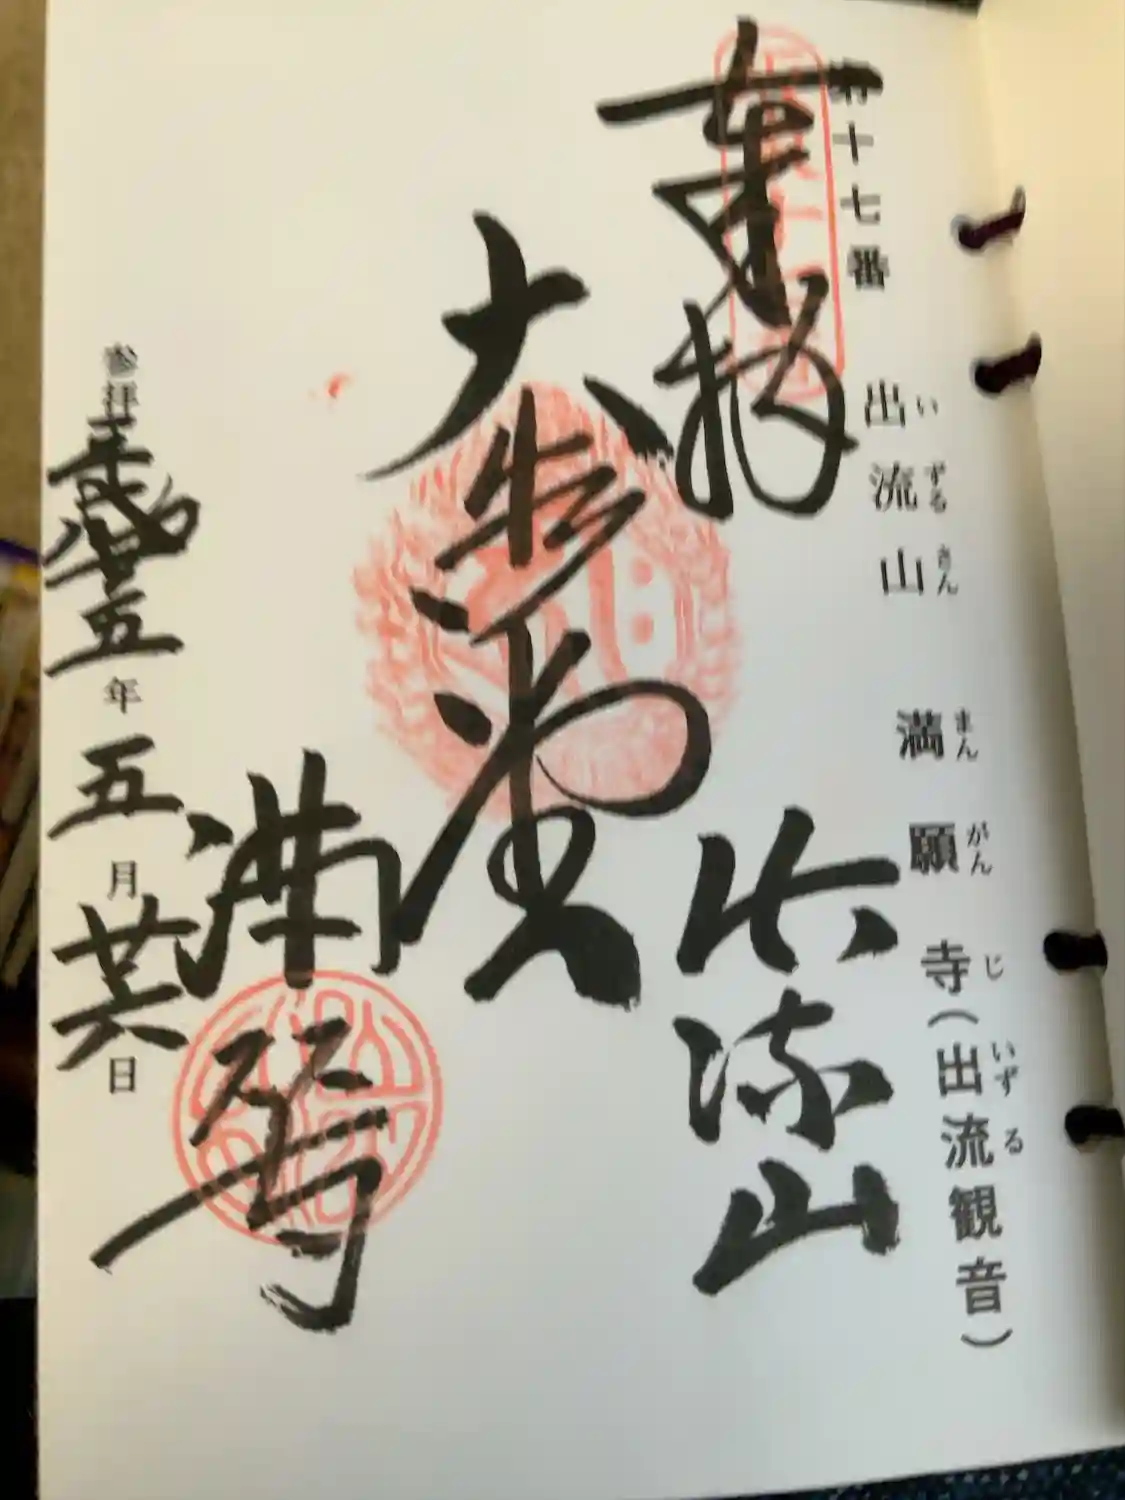 第十七番 出流山 満願寺(出流観音)
いずるさん まんがんじ いずる
奉拝
出流山
大御堂
満願寺
参拝 令和五年五月廿六日